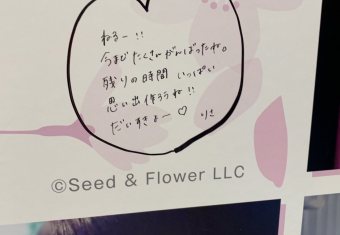 ねるー!!
今までたくさんがんばったね。
残りの時間いっぱい
思い出作ろうね!!
だいすきよー♡ りさ
©Seed & Flower LLC